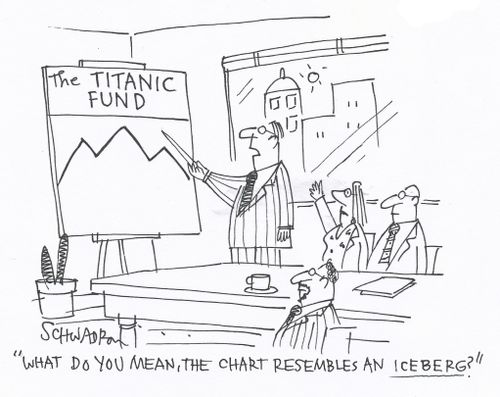 The TITANIC
FUND
SCHWADRON
"WHAT DO YOU MEAN, THE CHART RESEMBLES AN ICEBERG?"